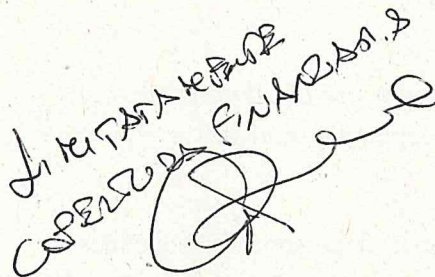 LIMITATAMENTE
COPERTURA FINANZIARIA